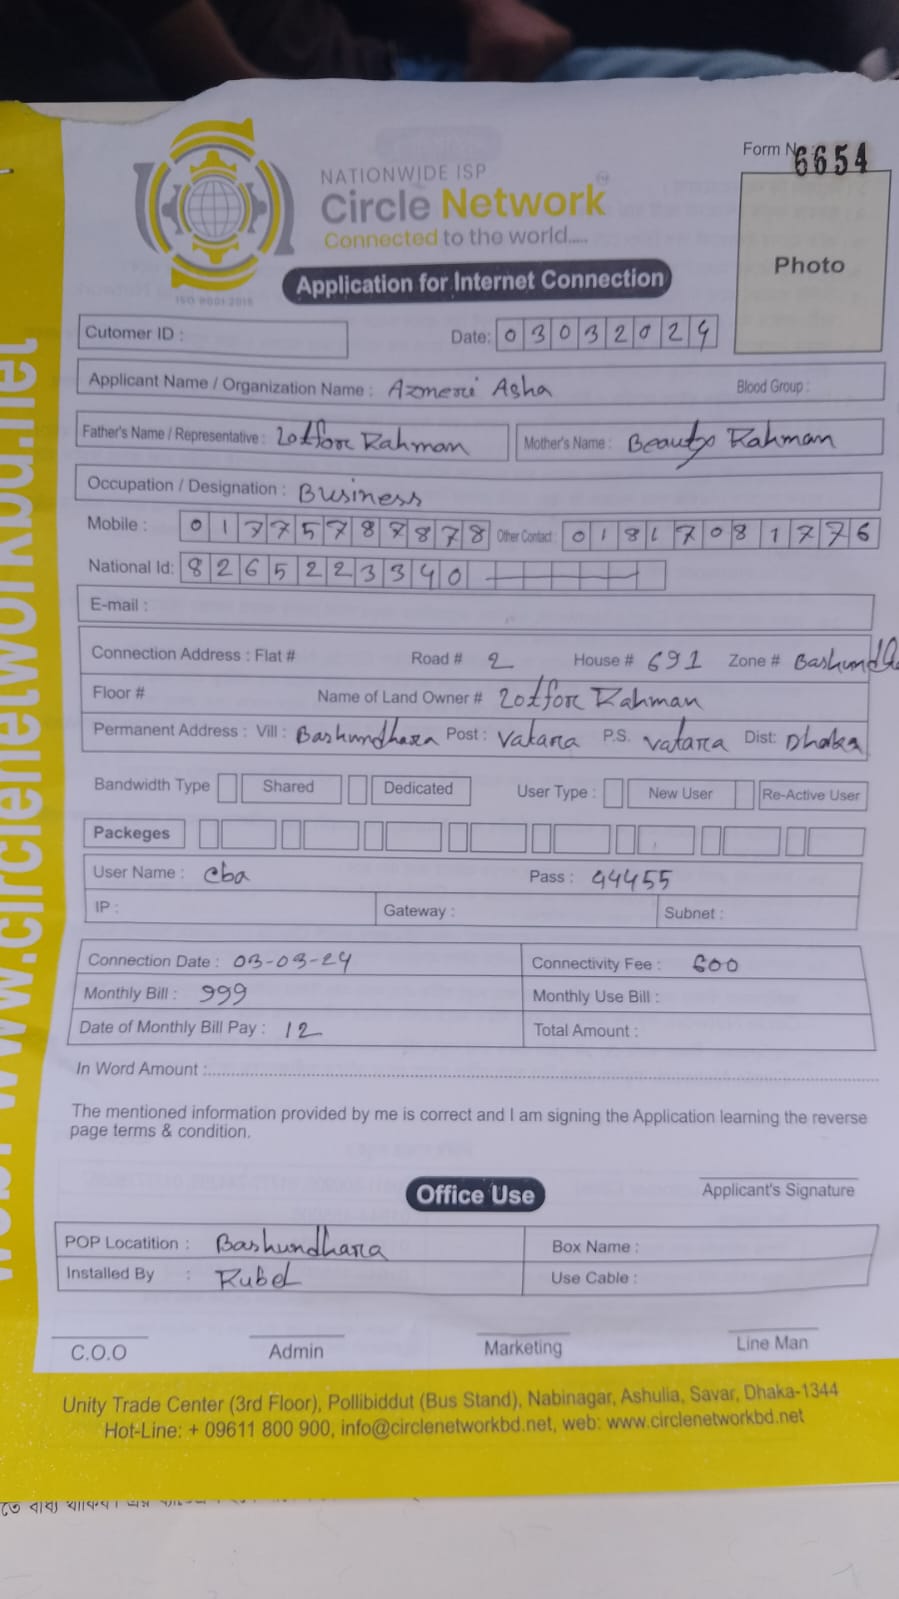 Form No 6654
NATIONWIDE ISP
Circle Network
Connected to the world.....
ISO 9001:2015
Application for Internet Connection
Photo
Cutomer ID :
Date: 03032024
Applicant Name / Organization Name : Azmeri Asha Blood Group :
Father's Name / Representative : Lotfor Rahman Mother's Name : Beauty Rahman
Occupation / Designation : Business
Mobile : 01775787878 Other Contact : 01817081776
National Id: 8265223340
E-mail :
Connection Address : Flat # Road # 2 House # 691 Zone #
Floor # Name of Land Owner # Lotfor Rahman
Permanent Address : Vill : Bashundhara Post : Vatara P.S. vatara Dist: Dhaka
Bandwidth Type Shared Dedicated User Type : New User Re-Active User
Packeges
User Name : cba Pass : 44455
IP : Gateway : Subnet :
Connection Date : 03-03-24 Connectivity Fee : 600
Monthly Bill : 999 Monthly Use Bill :
Date of Monthly Bill Pay : 12 Total Amount :
In Word Amount :
The mentioned information provided by me is correct and I am signing the Application learning the reverse
page terms & condition.
Applicant's Signature
Office Use
POP Locatition : Bashundhara Box Name :
Installed By : Rubel Use Cable :
C.O.O Admin Marketing Line Man
Unity Trade Center (3rd Floor), Pollibiddut (Bus Stand), Nabinagar, Ashulia, Savar, Dhaka-1344
Hot-Line: + 09611 800 900, info@circlenetworkbd.net, web: www.circlenetworkbd.net
www.circlenetworkbd.net